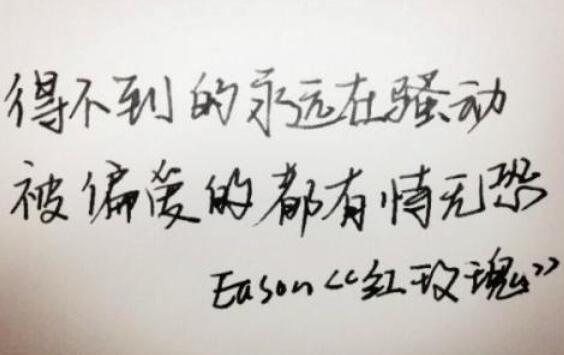 得不到的永远在骚动
被偏爱的都有恃无恐
Eason《红玫瑰》